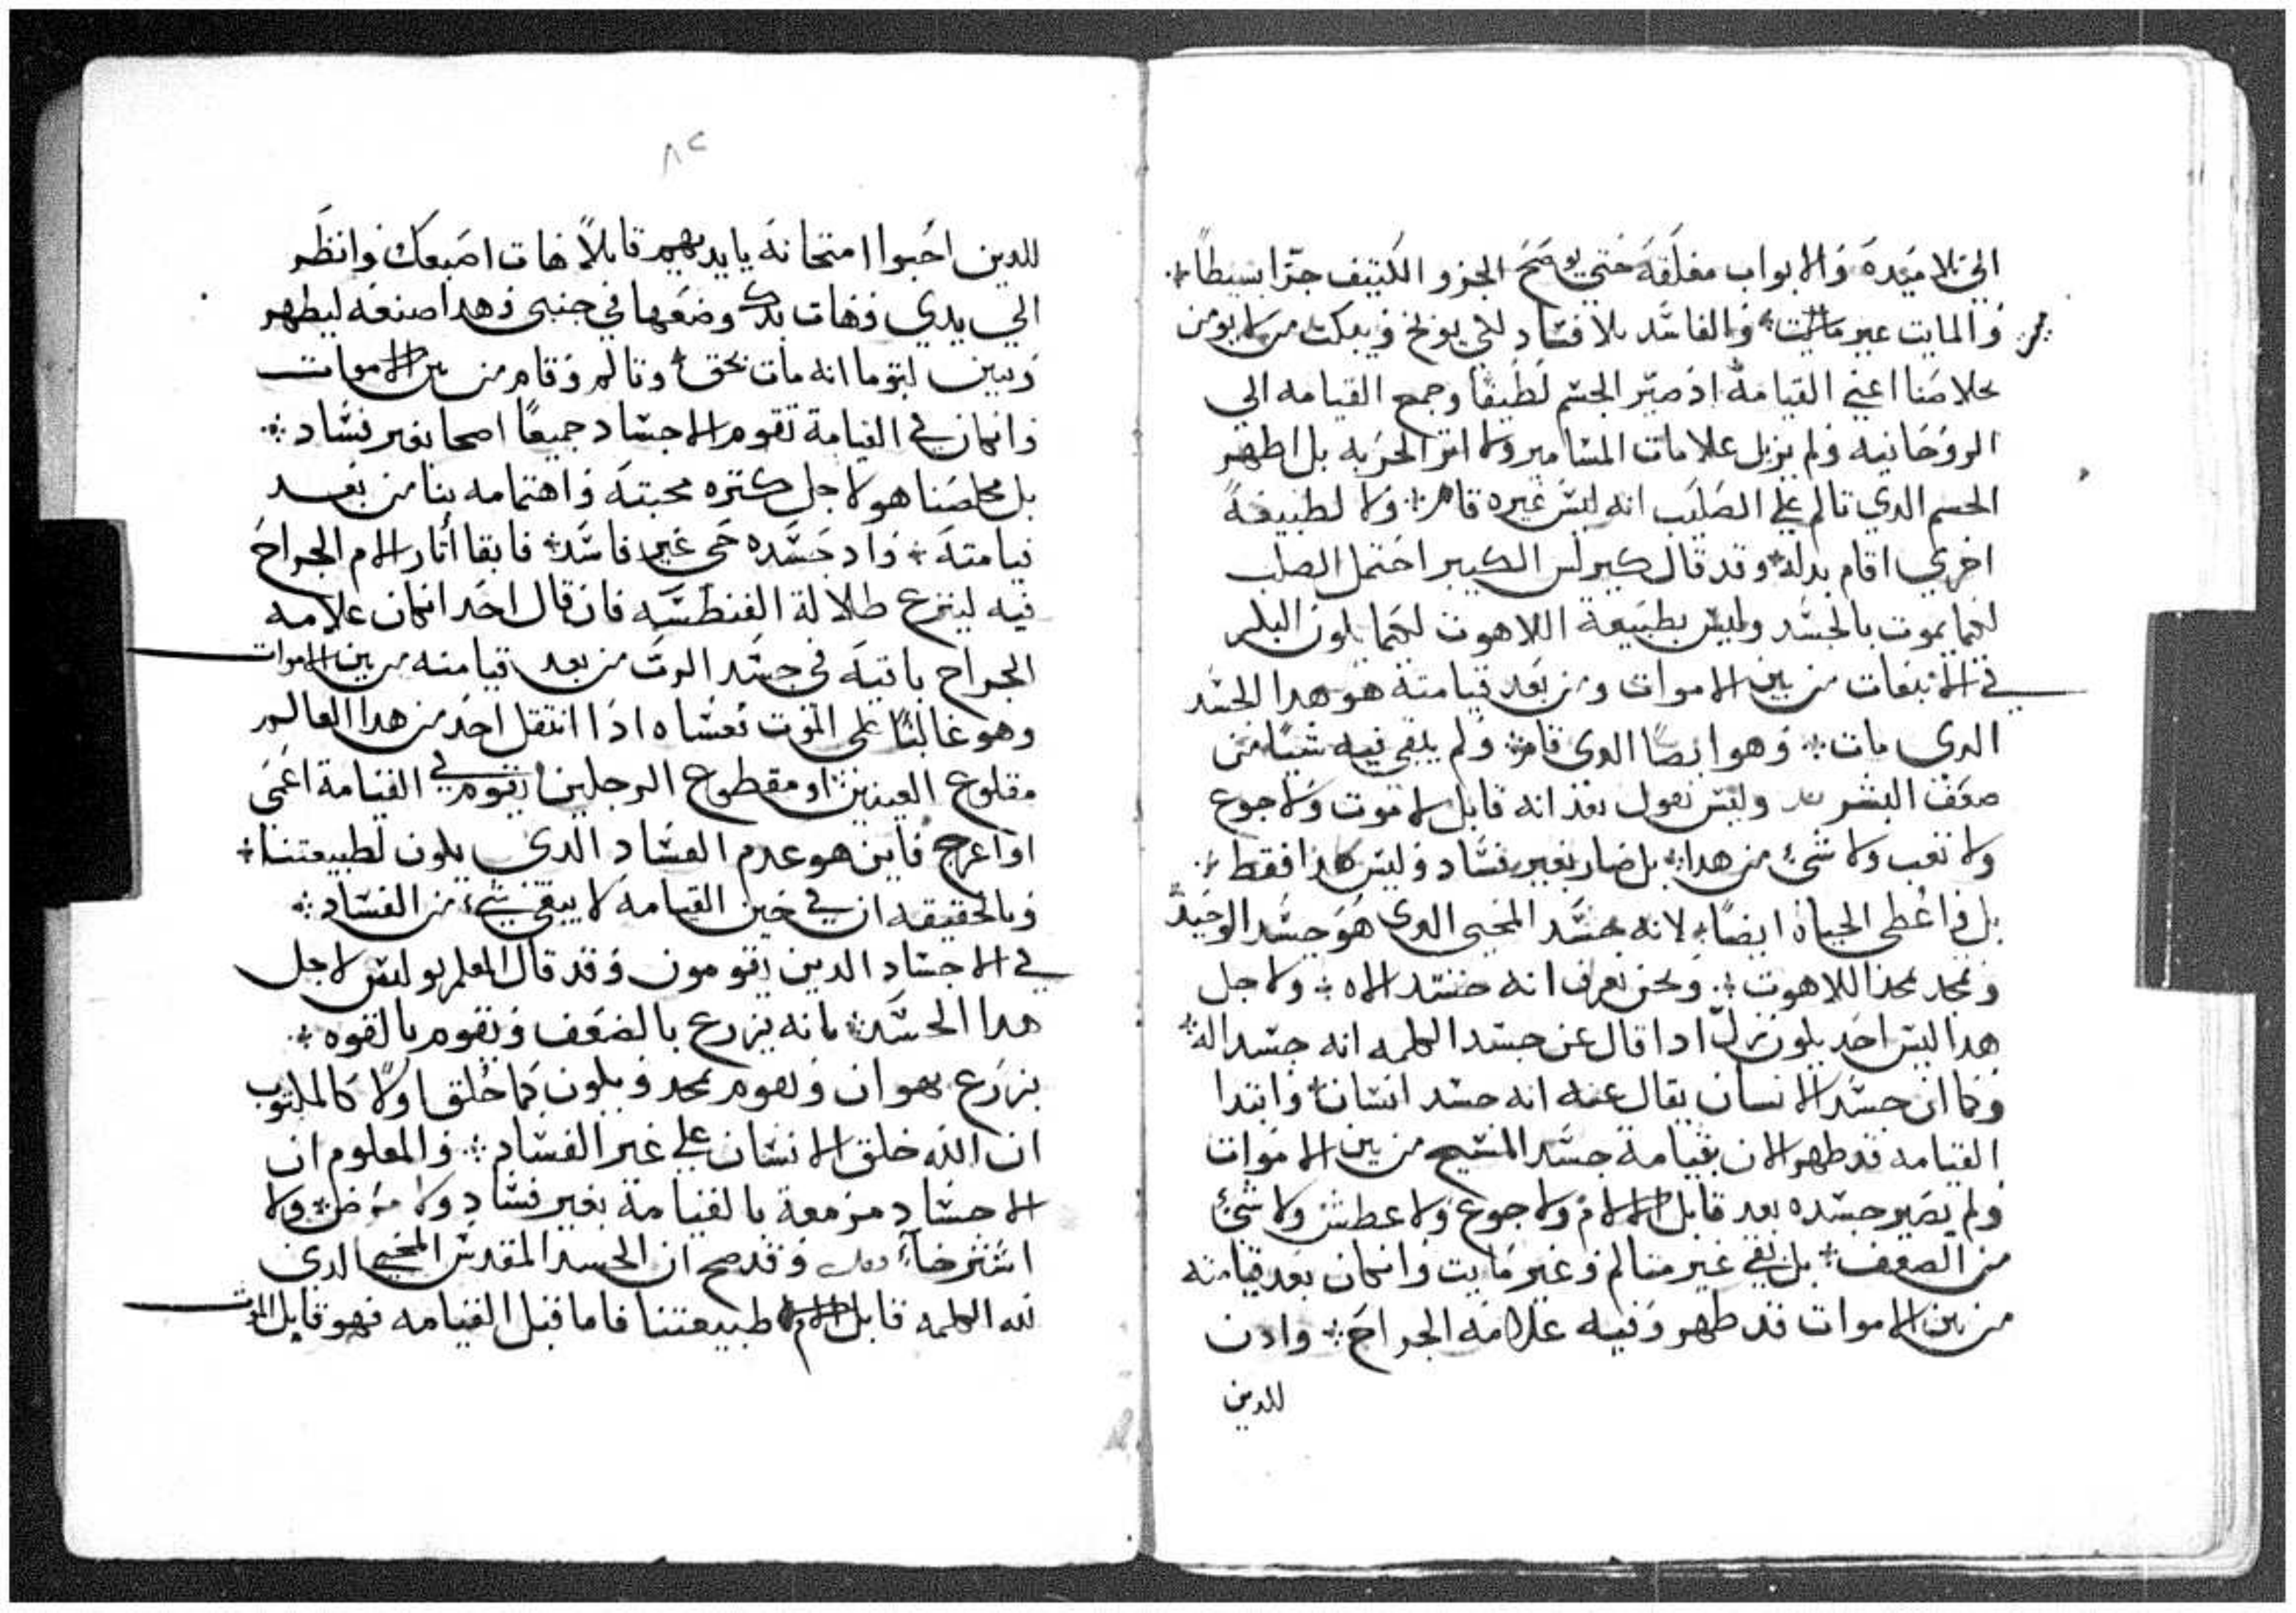 الي تلاميده والابواب مغلقه حتي يوضح الجزو الكتيف جزا بسيطا
والمايت غير مايت والفاسد بلا فساد لكي يوبخ ويبكت من لا يومن
بخلاصنا اعني القيامة اذ صير الجسم لطيفا وجمع القيامه الي
الروحانيه ولم يزيل علامات المسامير ولا اثر الحربه بل اظهر
الجسم الدي تالم علي الصليب انه ليس غيره قام ولا لطبيعة
اخري اقام بدله وقد قال كيرلس الكبير احتمل الصلب
لكيما يموت بالجسد وليس بطبيعة اللاهوت لكيما يكون البكر
في الانبعات من بين الاموات ومن بعد قيامته هو هدا الجسد
الدي مات وهو ايضا الدي قام ولم يبقي فيه شيا من
ضعف البشر وليس نقول بعد انه قابل لا موت ولا جوع
ولا تعب ولا شي من هدا بل صار بغير فساد وليس هدا فقط
بل واعطي الحياة ايضا لانه جسد المحيي الدي هو جسد الوحيد
ومجد بمجد اللاهوت ونحن نعرف انه جسد الاه ولاجل
هدا ليس احد يكون يزل ادا قال عن جسد الكلمه انه جسد اله
وكما ان جسد الانسان يقال عنه انه جسد انسان وابتدا
القيامه قد ظهر الان بقيامة جسد المسيح من بين الاموات
ولم يصير جسده بعد قابل الالام ولا جوع ولا عطش ولا شي
من الضعف بل بقي غير متالم وغير مايت وان كان بعد قيامته
من بين الاموات قد ظهر وفيه علامة الجراح وادن
للدين
٨٢
للدين احبوا امتحانه بايديهم قايلا هات اصبعك وانظر
الي يدي وهات يدك وضعها في جنبي وهدا صنعه ليظهر
ويبين لتوما انه مات بحق وتالم وقام من بين الاموات
وان كان في القيامة تقوم الاجساد جميعا اصحا بغير فساد
بل مخلصنا هو لاجل كتره محبته واهتمامه بنا من بعد
قيامته واد جسده حي غير فاسد فابقا اثار الام الجراح
فيه لينزع ضلالة الفنطسه فان قال احد ان كان علامه
الجراح باقيه في جسد الرب من بعد قيامته من بين الاموات
وهو غالبا علي الموت فعساه ادا انتقل احد من هدا العالم
مقلوع العينين او مقطوع الرجلين يقوم في القيامة اعمي
او اعرج فاين هو عدم الفساد الدي يكون لطبيعتنا
وبالحقيقه ان في حين القيامه لا يبقي شي من الفساد
في الاجساد الدين يقومون وقد قال المعلم بولس لاجل
هدا الجسد بانه يزرع بالضعف ويقوم بالقوه
يزرع بهوان ويقوم بمجد ويكون كما خلق اولا كالمكتوب
ان الله خلق الانسان علي غير الفساد والمعلوم ان
الاجساد مزمعة بالقيامة بغير فساد ولا مرض ولا
استرخاء وقد صح ان الجسد المقدس المحيي الدي
لله الكلمه قابل الام طبيعتنا فاما قبل القيامه فهو قابل الموت